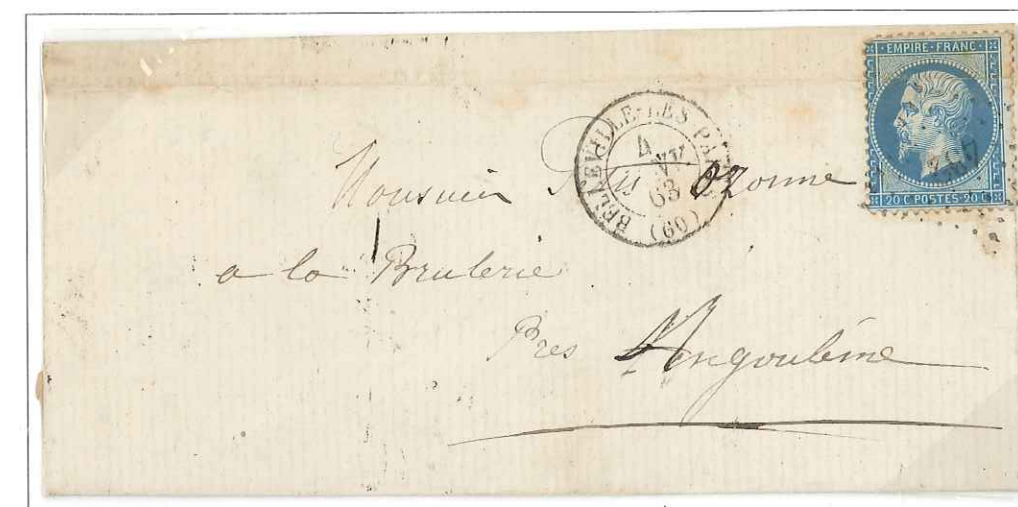 EMPIRE · FRANC ·
20 C POSTES · 20 C
BELLEVILLE-LES-PA
4
63
(60)
Monsieur Ozonne
a la Brulerie
Pres Angoulême